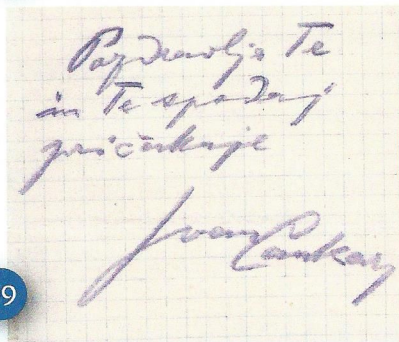 Pozdravlja Te
in Te spodaj
pričakuje
Ivan Cankar
9